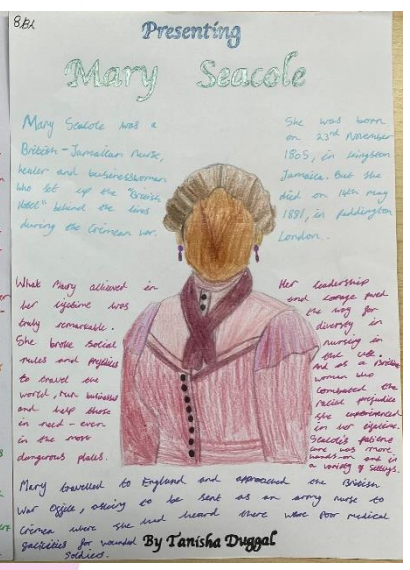 8Bh
Presenting
Mary Seacole
Mary Seacole was a
British-Jamaican nurse,
healer and businesswoman
who set up the "British
Hotel" behind the lines
during the Crimean war.
She was born
on 23rd November
1805, in kingston
Jamaica. But she
died on 14th may
1881, in paddington
London.
What Mary achieved in
her lifetime was
truly remarkable.
She broke social
rules and prejudices
to travel the
world, run businesses
and help those
in need - even
in the most
dangerous places.
Her leadership
and courage paved
the way for
diversity in
nursing in
the UK.
And as a British
woman who
combated the
racial prejudice
she experienced
in her lifetime.
Seacole's patient
care was more
hands-on and in
a variety of settings.
Mary travelled to England and approached the British
War Office, asking to be sent as an army nurse to
Crimea where she had heard there were poor medical
facilities for wounded
soldiers.
By Tanisha Duggal